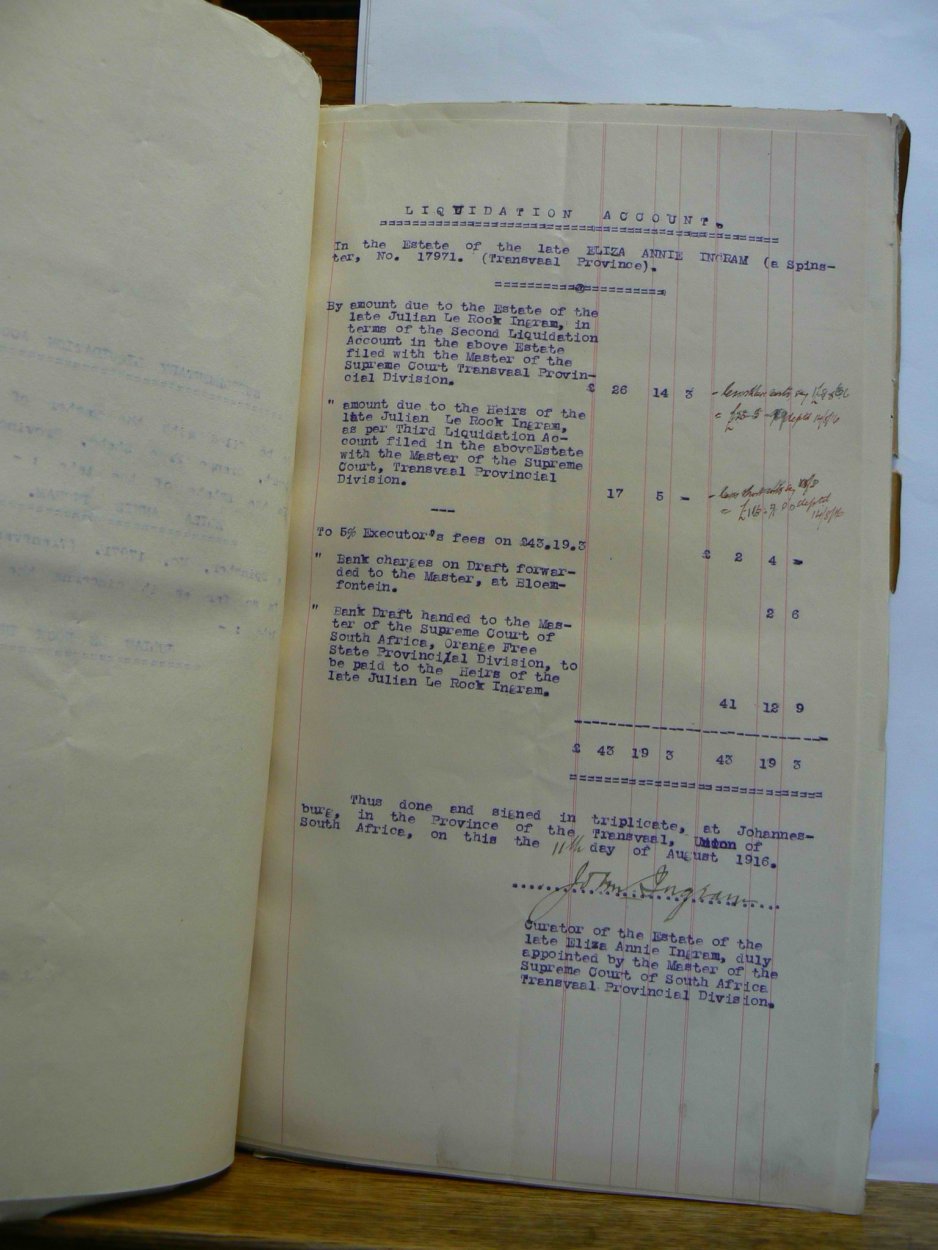 LIQUIDATION ACCOUNT.
In the Estate of the late ELIZA ANNIE INGRAM (a Spins-
ter, No. 17971. (Transvaal Province).
By amount due to the Estate of the
late Julian Le Rock Ingram, in
terms of the Second Liquidation
Account in the above Estate
filed with the Master of the
Supreme Court Transvaal Provin-
cial Division. £ 26 14 3
" amount due to the Heirs of the
late Julian Le Rock Ingram,
as per Third Liquidation Ac-
count filed in the aboveEstate
with the Master of the Supreme
Court, Transvaal Provincial
Division. 17 5 -
To 5% Executor's fees on £43.19.3 £ 2 4 -
" Bank charges on Draft forwar-
ded to the Master, at Bloem-
fontein. 2 6
" Bank Draft handed to the Mas-
ter of the Supreme Court of
South Africa, Orange Free
State Provincial Division, to
be paid to the Heirs of the
late Julian Le Rock Ingram. 41 12 9
£ 43 19 3 43 19 3
Thus done and signed in triplicate, at Johannes-
burg, in the Province of the Transvaal, Union of
South Africa, on this the 11th day of August 1916.
John Ingram
Curator of the Estate of the
late Eliza Annie Ingram, duly
appointed by the Master of the
Supreme Court of South Africa
Transvaal Provincial Division.